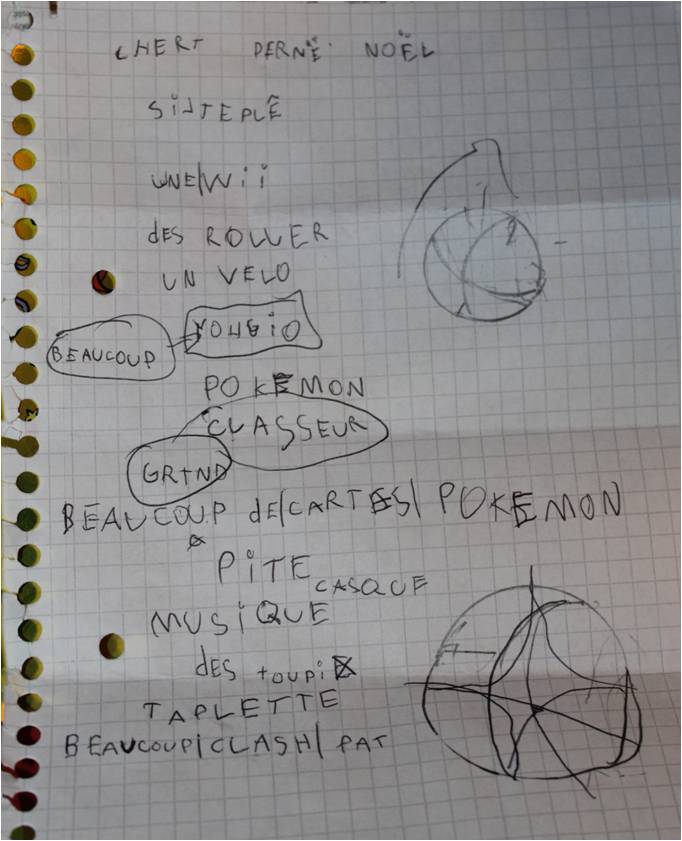 CHERT PERNË NOËL
SIJTEPLÊ
UNE/WII
dES ROLLER
UN VELO
BEAUCOUP YOUGIO
POKEMON
CLASSEUR
GRAND
BEAUCOUP dE/CARTES/ POKEMON
PITE CASQUE
MUSIQUE
dES tOUPIE
TAPLETTE
BEAUCOUP/CLASH/ PAT